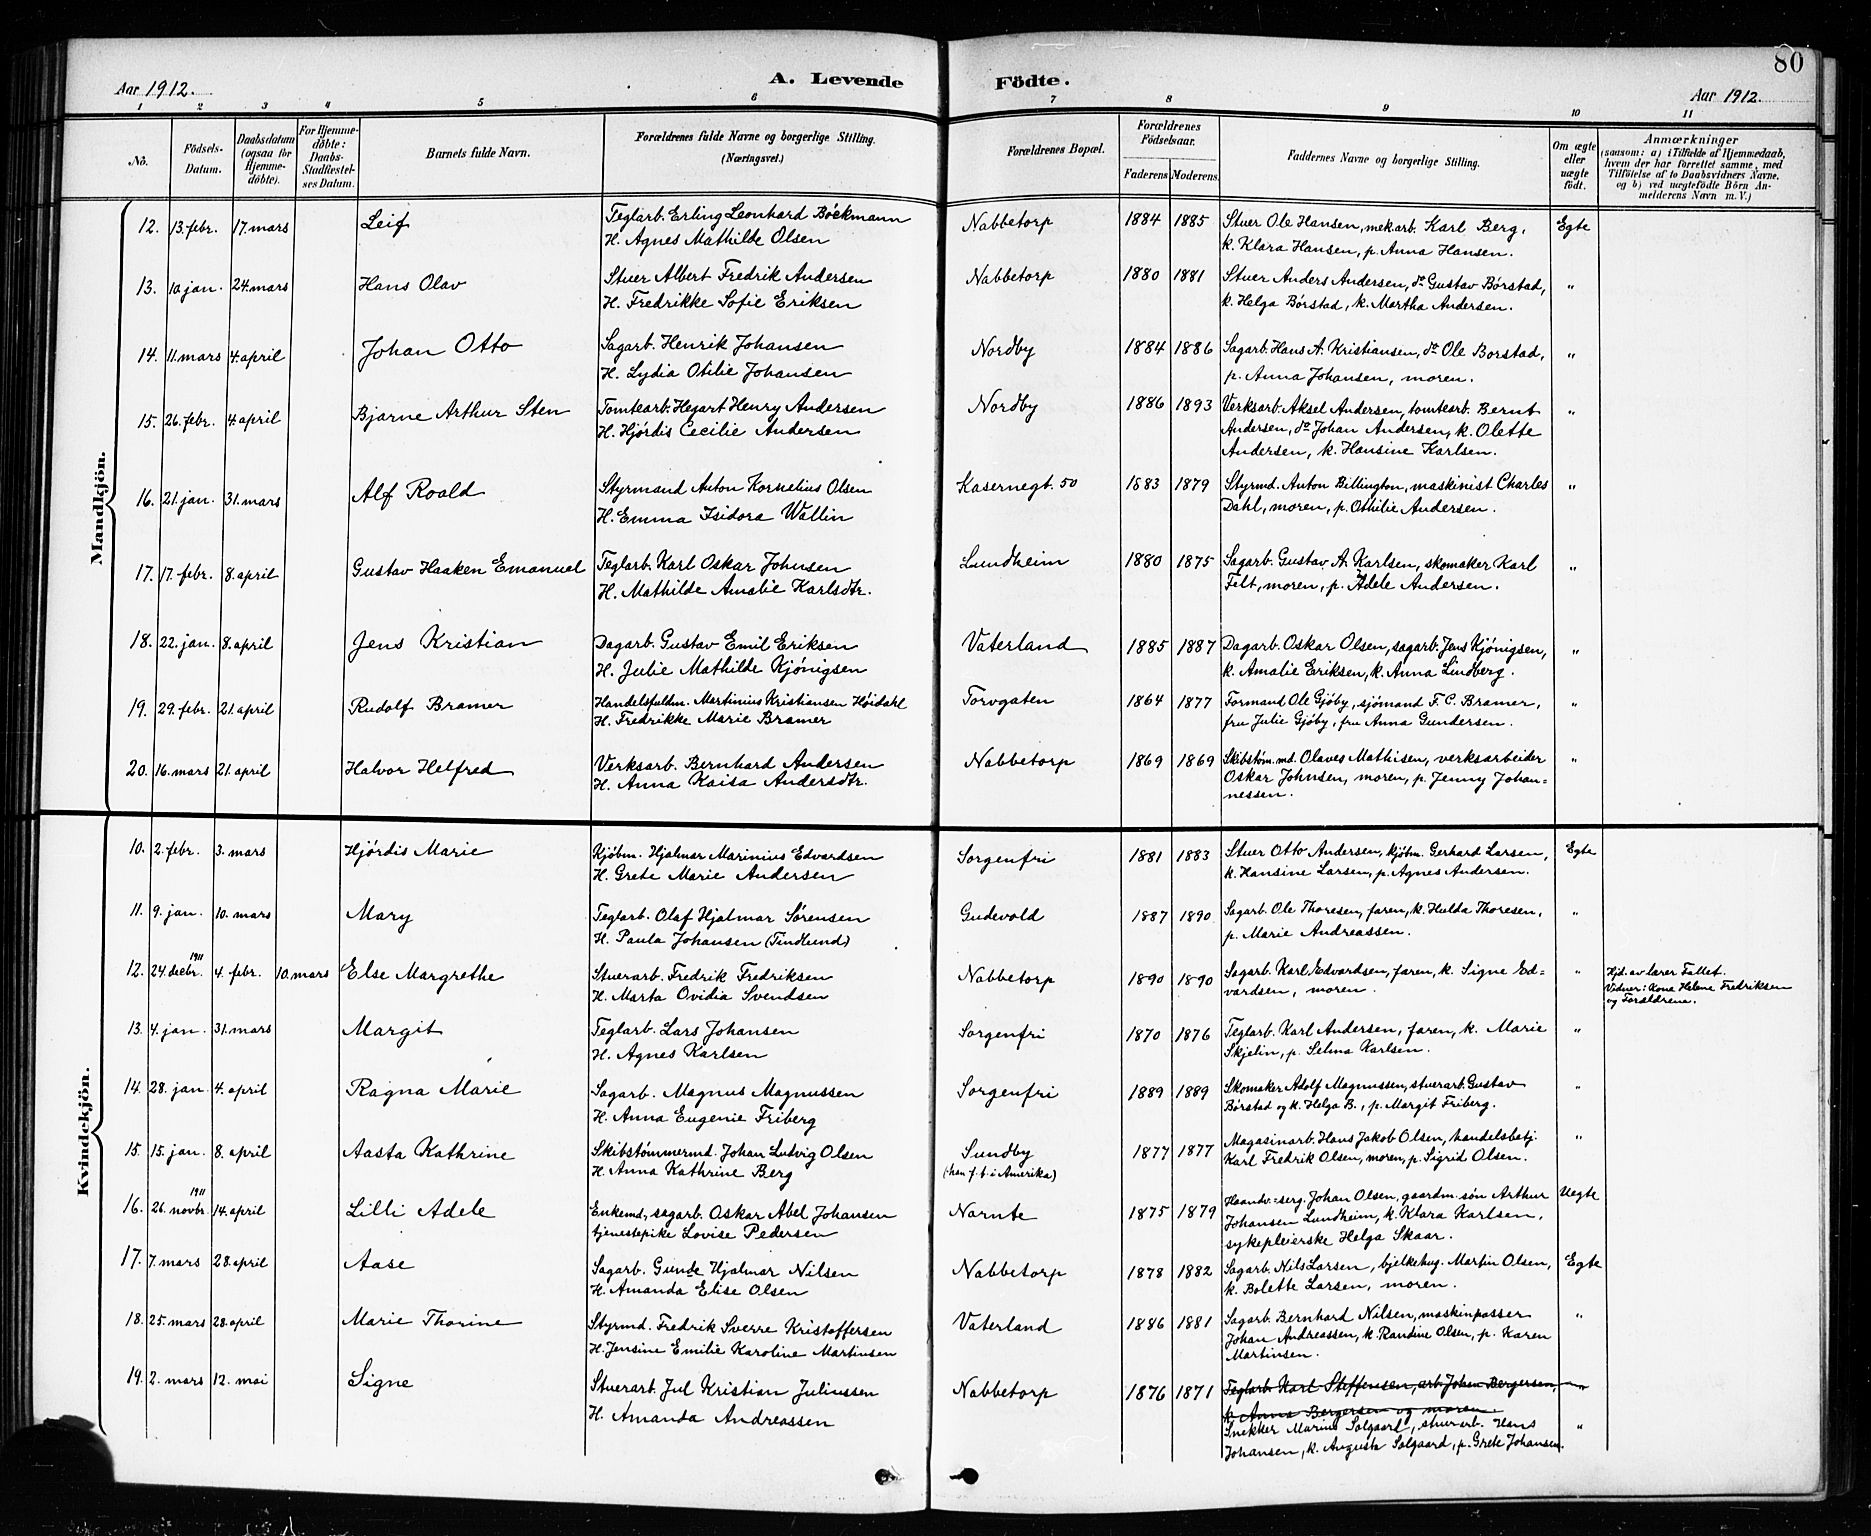 80
Aar 1912.
A. Levende Födte.
Aar 1912.
1 2 3 4 5 6 7 8 9 10 11
No.
Födsels-
Datum.
Daabsdatum
(ogsaa for
Hjemme-
döbte).
For Hjemme-
döbte:
Daabs-
Stadfæstel-
ses Datum.
Barnets fulde Navn.
Forældrenes fulde Navne og borgerlige Stilling.
(Næringsvei.)
Forældrenes Bopæl.
Forældrenes
Födselsaar.
Faderens
Moderens
Faddernes Navne og borgerlige Stilling.
Om ægte
eller
uægte
födt.
Anmærkninger
(saasom: a) i Tilfælde af Hjemmedaab,
hvem der har forrettet samme, med
Tilföielse af to Daabsvidners Navne,
og b) ved uægtefödte Börn An-
melderens Navn m. V.)
Mandkjön.
12. 13. febr. 17. mars Leif Teglarb. Erling Leonhard Böckmann Nabbetorp 1884 1885 Stuer Ole Hansen, mek.arb. Karl Berg, Egte
H. Agnes Mathilde Olsen k. Klara Hansen, p. Anna Hansen.
13. 10. jan. 24. mars Hans Olav Stuer Albert Fredrik Andersen Nabbetorp 1880 1881 Stuer Anders Andersen, do Gustav Børstad, "
H. Fredrikke Sofie Eriksen k. Helga Børstad, k. Martha Andersen.
14. 11. mars 4. april Johan Otto Sagarb. Henrik Johansen Nordby 1884 1886 Sagarb. Hans A. Kristiansen, do Ole Borstad, "
H. Lydia Otilie Johansen p. Anna Johansen, moren.
15. 26. febr. 4. april Bjarne Arthur Sten Tomtearb. Hegart Henry Andersen Nordby 1886 1893 Verksarb. Aksel Andersen, tomtearb. Bernt "
H. Hjördis Cecilie Andersen Andersen, do Johan Andersen, k. Olette
Andersen, k. Hansine Karlsen.
16. 21. jan. 31. mars Alf Roald Styrmand Anton Kornelius Olsen Kasernegt. 50 1883 1879 Styrmd. Anton Billington, maskinist Charles "
H. Emma Isidora Wallin Dahl, moren, p. Othilie Andersen.
17. 17. febr. 8. april Gustav Haaken Emanuel Teglarb. Karl Oskar Johnsen Lundheim 1880 1875 Sagarb. Gustav A. Karlsen, skomaker Karl "
H. Mathilde Amalie Karlsdtr. Felt, moren, p. Adele Andersen.
18. 22. jan. 8. april Jens Kristian Dagarb. Gustav Emil Eriksen Vaterland 1885 1887 Dagarb. Oskar Olsen, sagarb. Jens Kjönigsen, "
H. Julie Mathilde Kjönigsen k. Amalie Eriksen, k. Anna Lindberg.
19. 29. febr. 21. april Rudolf Bramer Handelsfuldm. Martinius Kristiansen Høidahl Torvgaten 1864 1877 Formand Ole Gjöby, sjömand F. C. Bramer, "
H. Fredrikke Marie Bramer fru Julie Gjöby, fru Anna Gundersen.
20. 16. mars 21. april Halvor Helfred Verksarb. Bernhard Andersen Nabbetorp 1869 1869 Skibstøm.md. Olaves Mathisen, verksarbeider "
H. Anna Kaisa Andersdtr. Oskar Johnsen, moren, p. Jenny Johan-
nessen.
Kvindekjön.
10. 2. febr. 3. mars Hjördis Marie Kjöbm. Hjalmar Marinius Edvardsen Sorgenfri 1881 1883 Stuer Otto Andersen, kjöbm. Gerhard Larsen, Egte
H. Grete Marie Andersen k. Hansine Larsen, p. Agnes Andersen.
11. 9. jan. 10. mars Mary Teglarb. Olaf Hjalmar Sørensen Gudevold 1887 1890 Sagarb. Ole Thoresen, faren, k. Hulda Thoresen, "
H. Paula Johansen (Tindlund) p. Marie Andreassen.
12. 24. decbr. 1911 4. febr. 10. mars Else Margrethe Stuerarb. Fredrik Fredriksen Nabbetorp 1890 1890 Sagarb. Karl Edvardsen, faren, k. Signe Ed- " Hjd. av lærer Fallet.
H. Marta Ovidia Svendsen vardsen, moren. Vidner: Kona Helene Fredriksen
og Forældrene.
13. 4. jan. 31. mars Margit Teglarb. Lars Johansen Sorgenfri 1870 1876 Teglarb. Karl Andersen, faren, k. Marie "
H. Agnes Karlsen Skjelin, p. Selma Karlsen.
14. 28. jan. 4. april Ragna Marie Sagarb. Magnus Magnussen Sorgenfri 1889 1889 Skomaker Adolf Magnussen, stuerarb. Gustav "
H. Anna Eugenie Friberg Börstad og k. Helga B., p. Margit Friberg.
15. 15. jan. 8. april Aasta Kathrine Skibstømmermd. Johan Ludvig Olsen Sundby 1877 1877 Magasinarb. Hans Jakob Olsen, handelsbetj. "
H. Anna Kathrine Berg (han f. t. i Amerika) Karl Fredrik Olsen, moren, p. Sigrid Olsen.
16. 26. novbr. 1911 14. april Lilli Adele Enkemd., sagarb. Oskar Abel Johansen Narnte 1875 1879 Haandv.=serg. Johan Olsen, gaardm. søn Arthur Uegte
tjenestepike Lovise Pedersen Johansen Lundheim, k. Klara Karlsen,
sykepleierske Helga Skaar.
17. 7. mars 28. april Aase Sagarb. Gunde Hjalmar Nilsen Nabbetorp 1878 1882 Sagarb. Nils Larsen, bjelkehug. Martin Olsen, Egte
H. Amanda Elise Olsen k. Bolette Larsen, moren.
18. 25. mars 28. april Marie Thorine Styrmd. Fredrik Sverre Kristoffersen Vaterland 1886 1881 Sagarb. Bernhard Nilsen, maskinpasser "
H. Jensine Emilie Karoline Martinsen Johan Andreassen, k. Randine Olsen, p. Karen
Martinsen.
19. 2. mars 12. mai Signe Stuerarb. Jul Kristian Juliussen Nabbetorp 1876 1871 Teglarb. Karl Steffensen, arb. Johan Bergersen, "
H. Amanda Andreassen k. Anna Bergersen og moren.
Snekker Marius Solgaard, stuerarb. Hans "
Johansen, k. Augusta Solgaard, p. Grete Johansen.